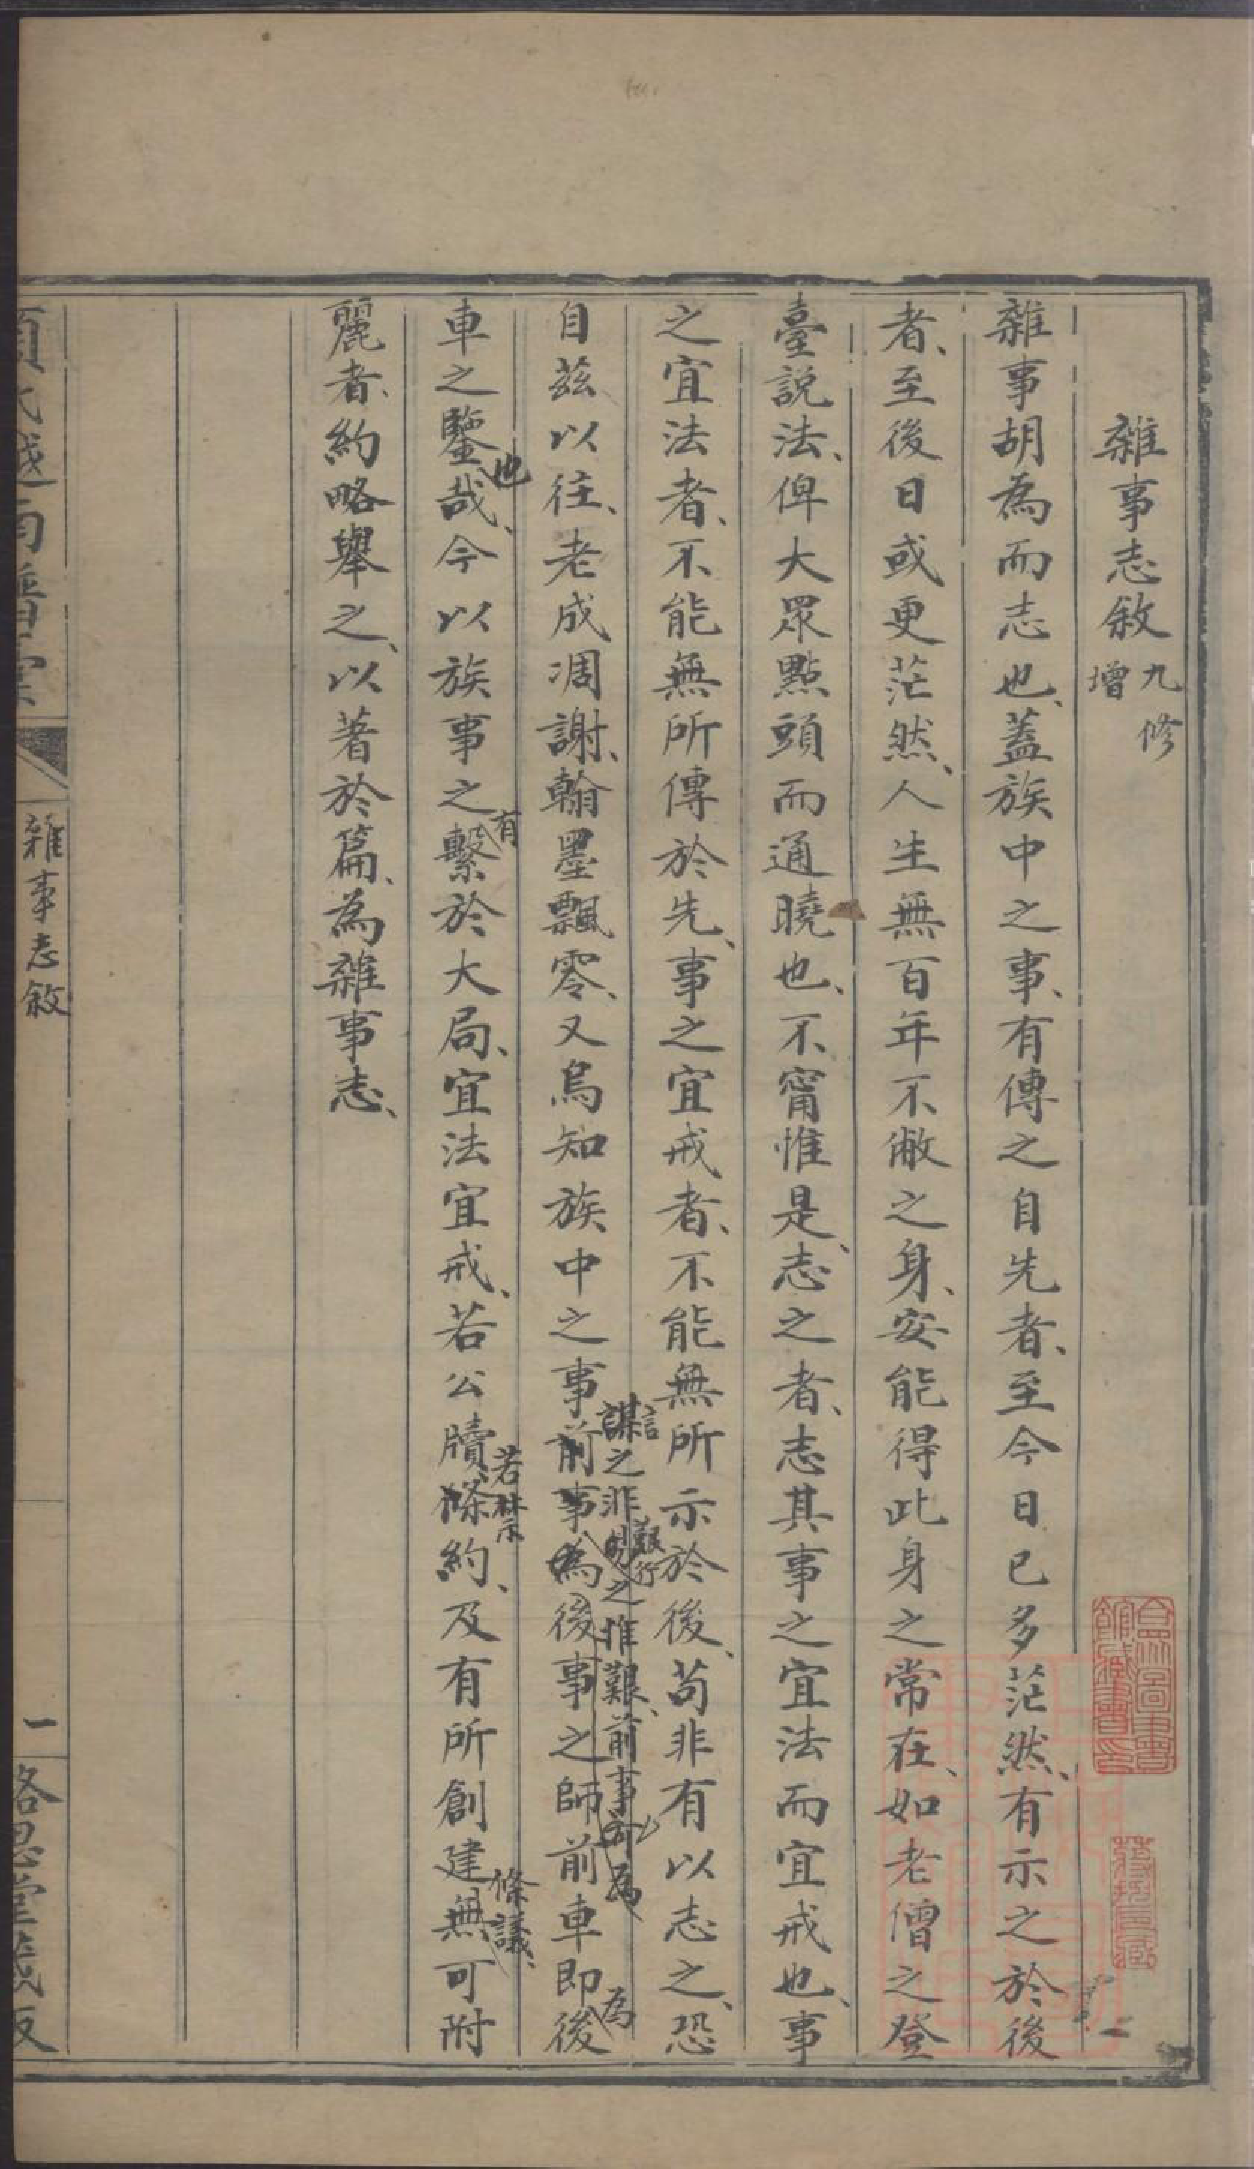 雜事志敘 九修增
雜事胡為而志也、蓋族中之事、有傳之自先者、至今日已多茫然、有示之於後
者、至後日或更茫然、人生無百年不敝之身、安能得此身之常在、如老僧之登
臺說法、俾大眾點頭而通曉也、不甯惟是、志之者、志其事之宜法而宜戒也、事
之宜法者、不能無所傳於先、事之宜戒者、不能無所示於後、苟非有以志之、恐
謀之非易言之惟艱、前事為
自茲以往、老成凋謝、翰墨飄零、又烏知族中之事前事為後事之師前車即後
為
也
有
若禁示
條議、
車之鑒哉、今以族事之繫於大局、宜法宜戒、若公牘條約、及有所創建無可附
麗者、約略舉之、以著於篇、為雜事志、
雜事志敘
一